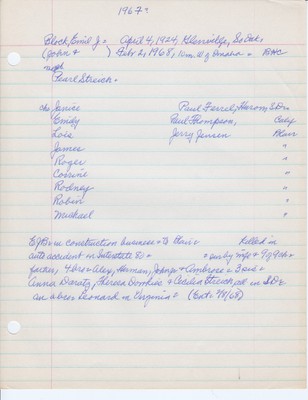 1967?
Block, Emil J. April 4, 1924, Glenville, So Dak.
(John & ) Feb 2, 1968, 10 mi. W of Omaha BHC
Pearl Streich.
ch. Janice Paul Ferrel, Huron, S.D.
Emily Paul Thompson, Calif
Lois Jerry Jensen Blair
James
Roger
Corrine
Rodney
Robin
Michael
EJB in construction business to Blair. Killed in
auto accident in Interstate 80. sur by wife & 9 ch
father, 4 bros Alex, Herman, John & Ambrose & 3 sis
Anna Theresa & Cecilia Streich all in S.D.
an a bro, Leonard in Virginia. (Ent 2/8/68)